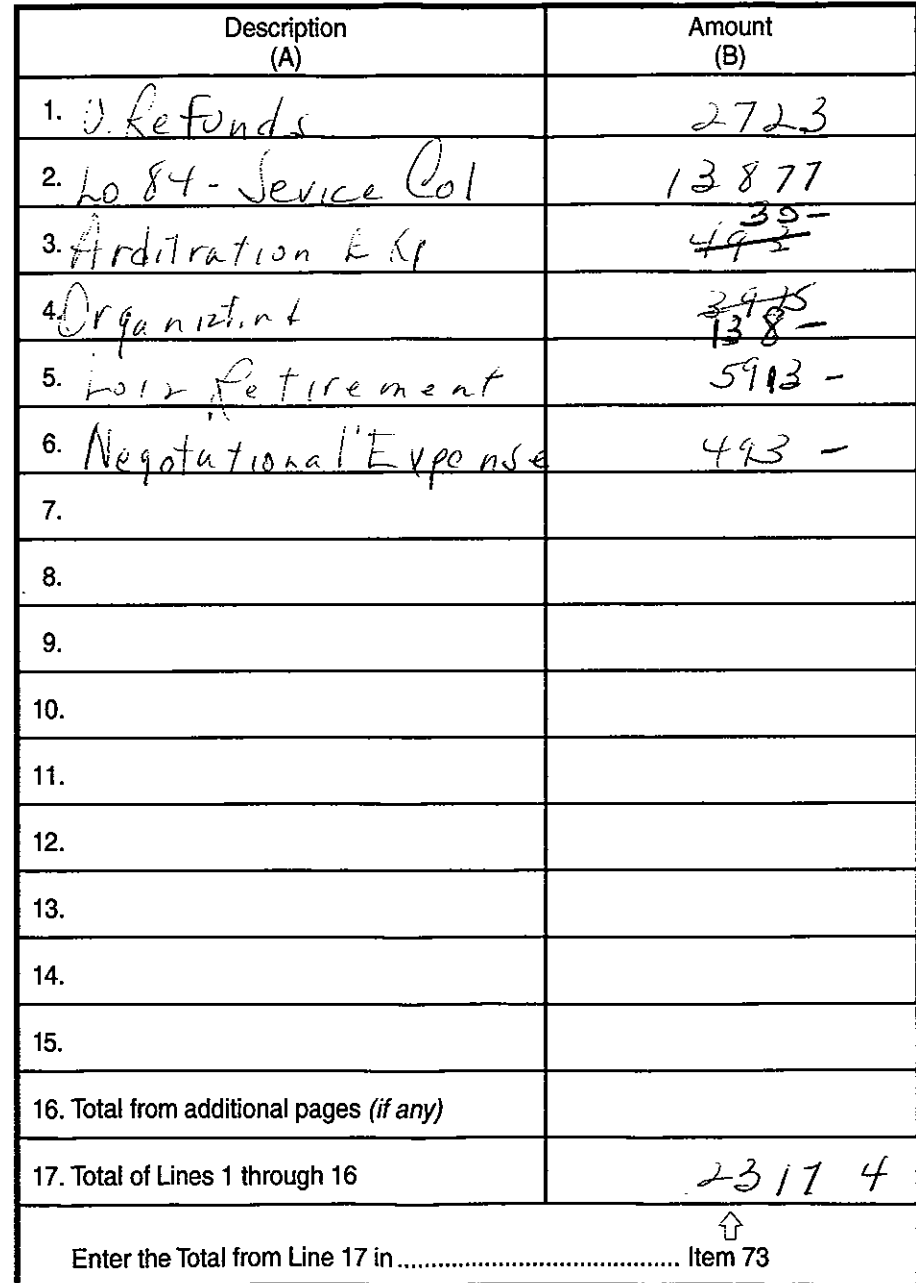 Description Amount
(A) (B)
1. D. Refunds 2723
2. Lo 84 - Sevice Col 13877
30 -
3. Arditration EXP 492
4. Organizint 3915
138 -
5. Lo12 Retirement 5913 -
6. Negotutional Expense 493 -
7.
8.
9.
10.
11.
12.
13.
14.
15.
16. Total from additional pages (if any)
17. Total of Lines 1 through 16 23174
Enter the Total from Line 17 in ........................................ Item 73